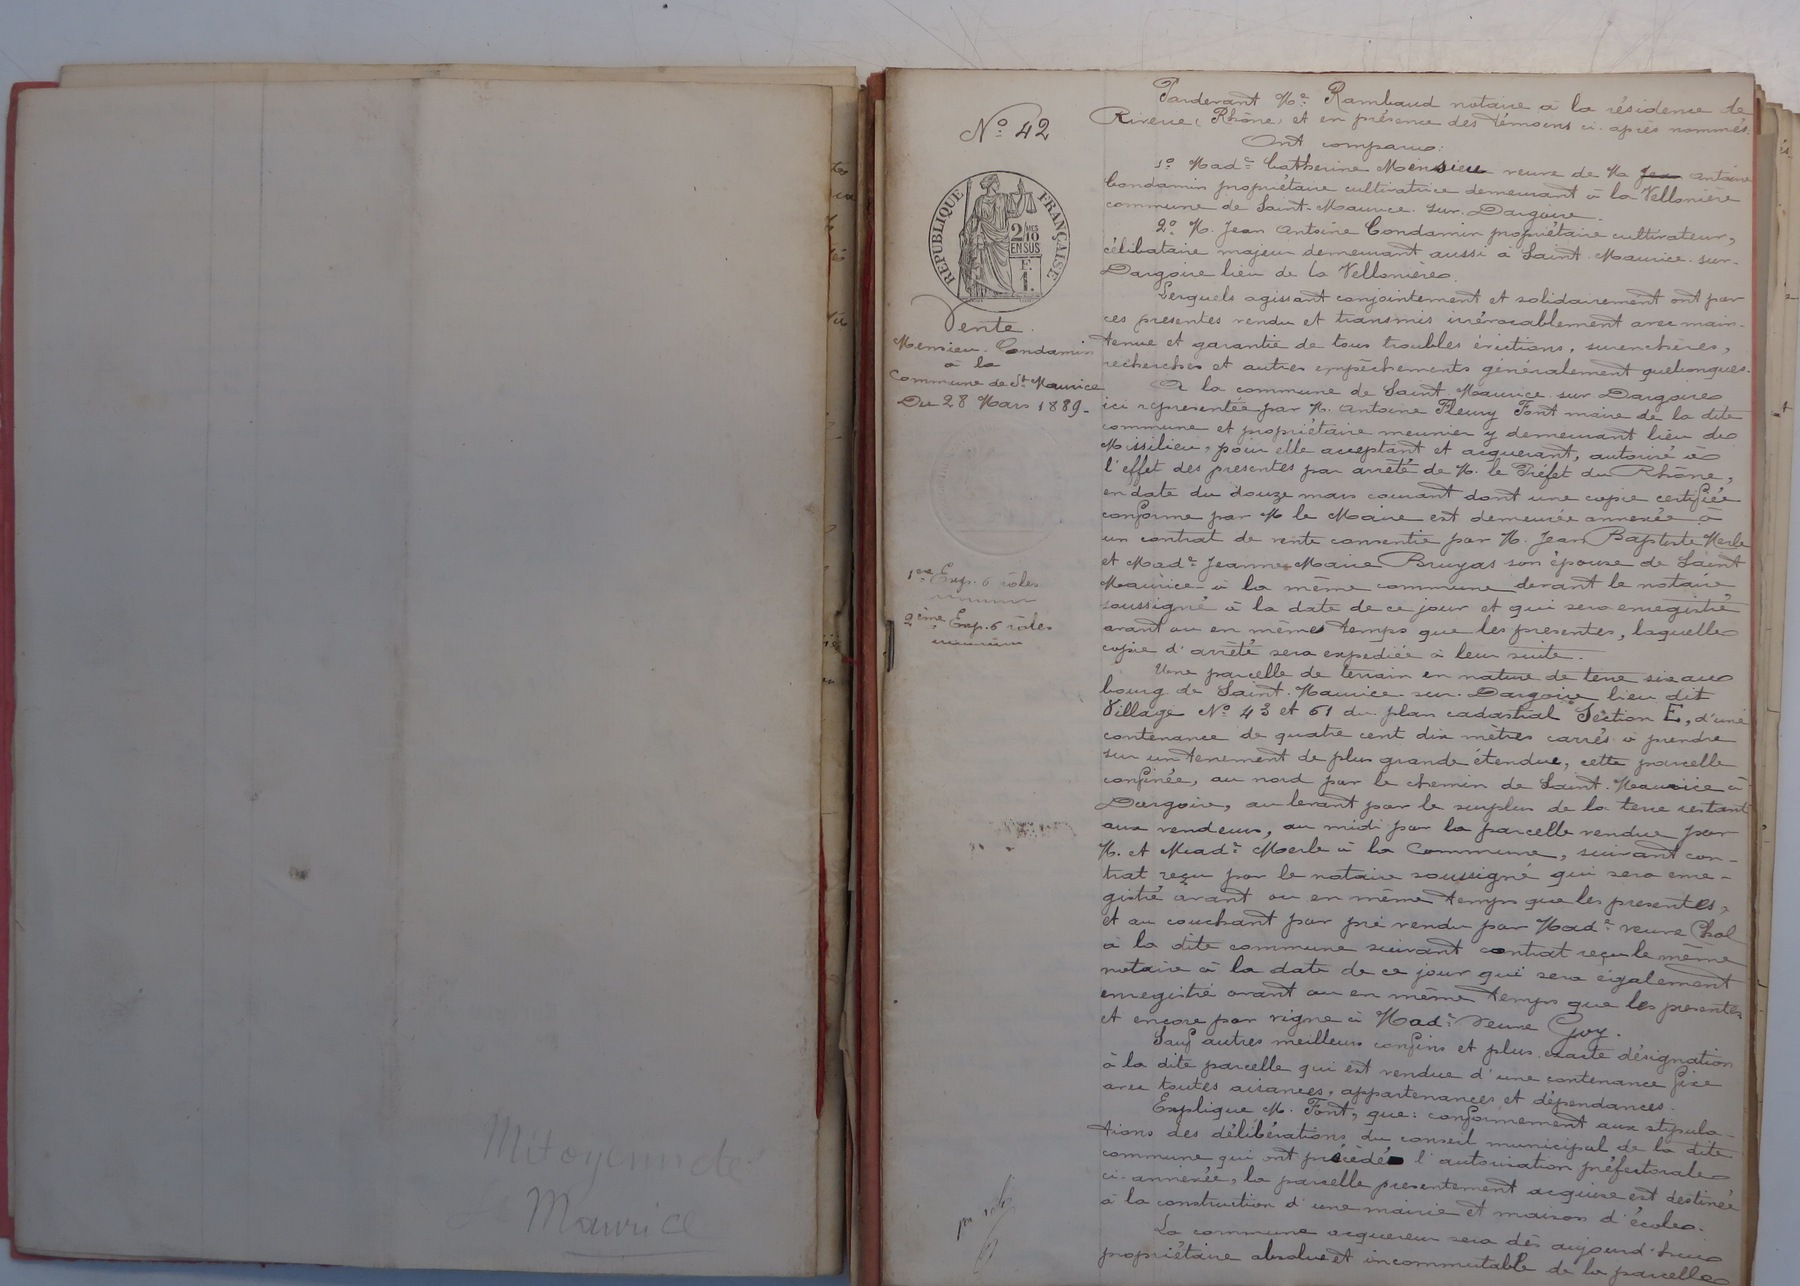 Mitoyenneté
Maurice
No 42
REPUBLIQUE FRANÇAISE
2/10 MES
EN SUS
F.
1.
Vente
Mensieu-Condamin
à la
Commune de St Maurice
Du 28 Mars 1889.
1ère Exp. 6 rôles
2ème Exp. 6 rôles
Pardevant Me Rambaud notaire à la résidence de
Riverie (Rhône) et en présence des témoins ci-après nommés.
Ont comparu:
1o Made Catherine Mensieu veuve de M. Jean Antoine
Condamin propriétaire cultivatrice demeurant à la Vellonière
commune de Saint-Maurice-sur-Dargoire.
2o M. Jean Antoine Condamin propriétaire cultivateur,
célibataire majeur demeurant aussi à Saint-Maurice-sur-
Dargoire lieu de la Vellonière.
Lesquels agissant conjointement et solidairement ont par
ces présentes vendu et transmis irrévocablement avec main-
tenue et garantie de tous troubles évictions, surenchères,
recherches et autres empêchements généralement quelconques.
A la commune de Saint-Maurice-sur-Dargoire
ici représentée par M. Antoine Fleury Font maire de la dite
commune et propriétaire meunier y demeurant lieu de
Missilieu, pour elle acceptant et acquérant, autorisé à
l'effet des présentes par arrêté de M. le Préfet du Rhône,
en date du douze mars courant dont une copie certifiée
conforme par M. le Maire est demeurée annexée à
un contrat de vente consentie par M. Jean Baptiste Merle
et Made Jeanne-Marie Bruyas son épouse de Saint
Maurice à la même commune devant le notaire
soussigné à la date de ce jour et qui sera enregistré
avant ou en même temps que les présentes, laquelle
copie d'arrêté sera expédiée à leur suite.
Une parcelle de terrain en nature de terre sise au
bourg de Saint-Maurice-sur-Dargoire lieu dit
Village No 43 et 61 du plan cadastral Section E, d'une
contenance de quatre cent dix mètres carrés à prendre
sur un tenement de plus grande étendue, cette parcelle
confinée, au nord par le chemin de Saint-Maurice à
Dargoire, au levant par le surplus de la terre restant
aux vendeurs, au midi par la parcelle vendue par
M. et Made Merle à la Commune, suivant con-
trat reçu par le notaire soussigné qui sera enre-
gistré avant ou en même temps que les présentes,
et au couchant par pré vendu par Made veuve Chol
à la dite commune suivant contrat reçu le même
notaire à la date de ce jour qui sera également
enregistré avant ou en même temps que les présentes
et encore par vigne à Made Veuve Goy.
Sauf autres meilleurs confins et plus exacte désignation
à la dite parcelle qui est vendue d'une contenance fixe
avec toutes aisances, appartenances et dépendances.
Explique M. Font, que: conformément aux stipula-
tions des délibérations du conseil municipal de la dite
commune qui ont précédé l'autorisation préfectorale
ci-annexée, la parcelle présentement acquise est destinée
à la construction d'une mairie et maison d'école.
La commune acquéreur sera dès aujourd'hui
propriétaire absolue et incommutable de la parcelle